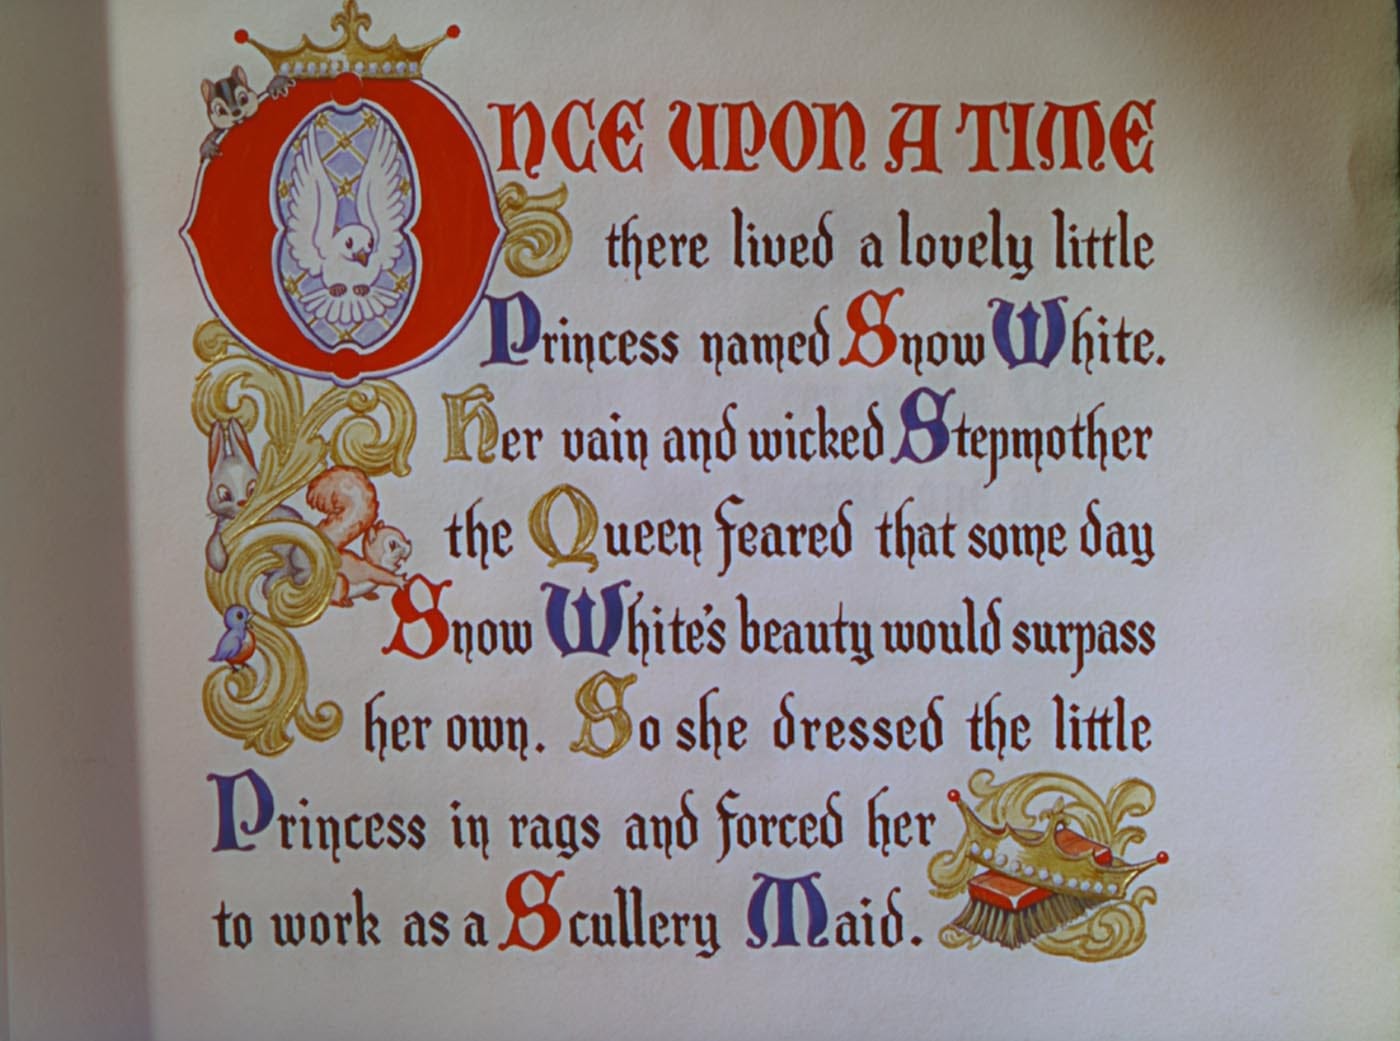 ONCE UPON A TIME
there lived a lovely little
Princess named Snow White.
Her vain and wicked Stepmother
the Queen feared that some day
Snow White's beauty would surpass
her own. So she dressed the little
Princess in rags and forced her
to work as a Scullery Maid.